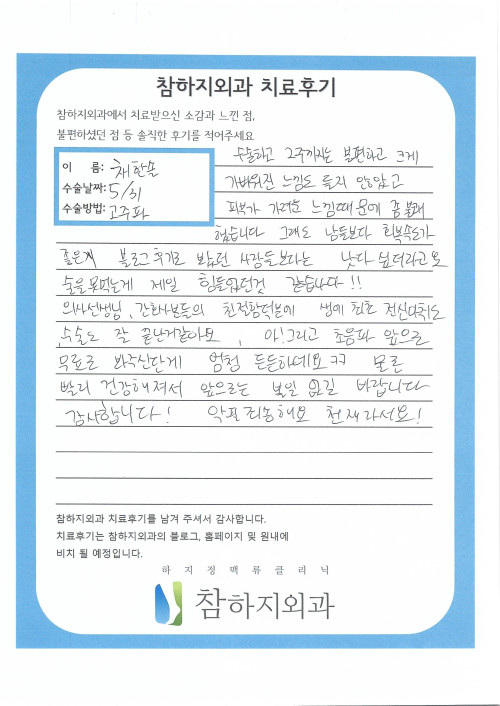 참하지외과 치료후기
참하지외과에서 치료받으신 소감과 느낀 점,
불편하셨던 점 등 솔직한 후기를 적어주세요
이 름: 채한솔
수술날짜: 5/31
수술방법: 고주파
수술하고 2주까지는 불편하고 크게
가벼워진 느낌도 들지 않았고
피부가 가려운 느낌때문에 좀 불쾌
했습니다 그래도 남들보다 회복속도가
좋은지 블로그 후기로 봤던 사람들보다는 낫다 싶더라고욧
술을 못먹는게 제일 힘들었던것 같습니다!!
의사선생님, 간호사분들의 친절함덕분에 생애 최초 전신마취도
수술도 잘 끝난거같아요, 아! 그리고 초음파 앞으로
무료로 봐주신단게 엄청 든든하네요ㅋㅋ 얼른
빨리 건강해져서 앞으로는 볼일 없길 바랍니다
감사합니다! 악필죄송해요 천재라서요!
참하지외과 치료후기를 남겨 주셔서 감사합니다.
치료후기는 참하지외과의 블로그, 홈페이지 및 원내에
비치 될 예정입니다.
하지정맥류클리닉
참하지외과